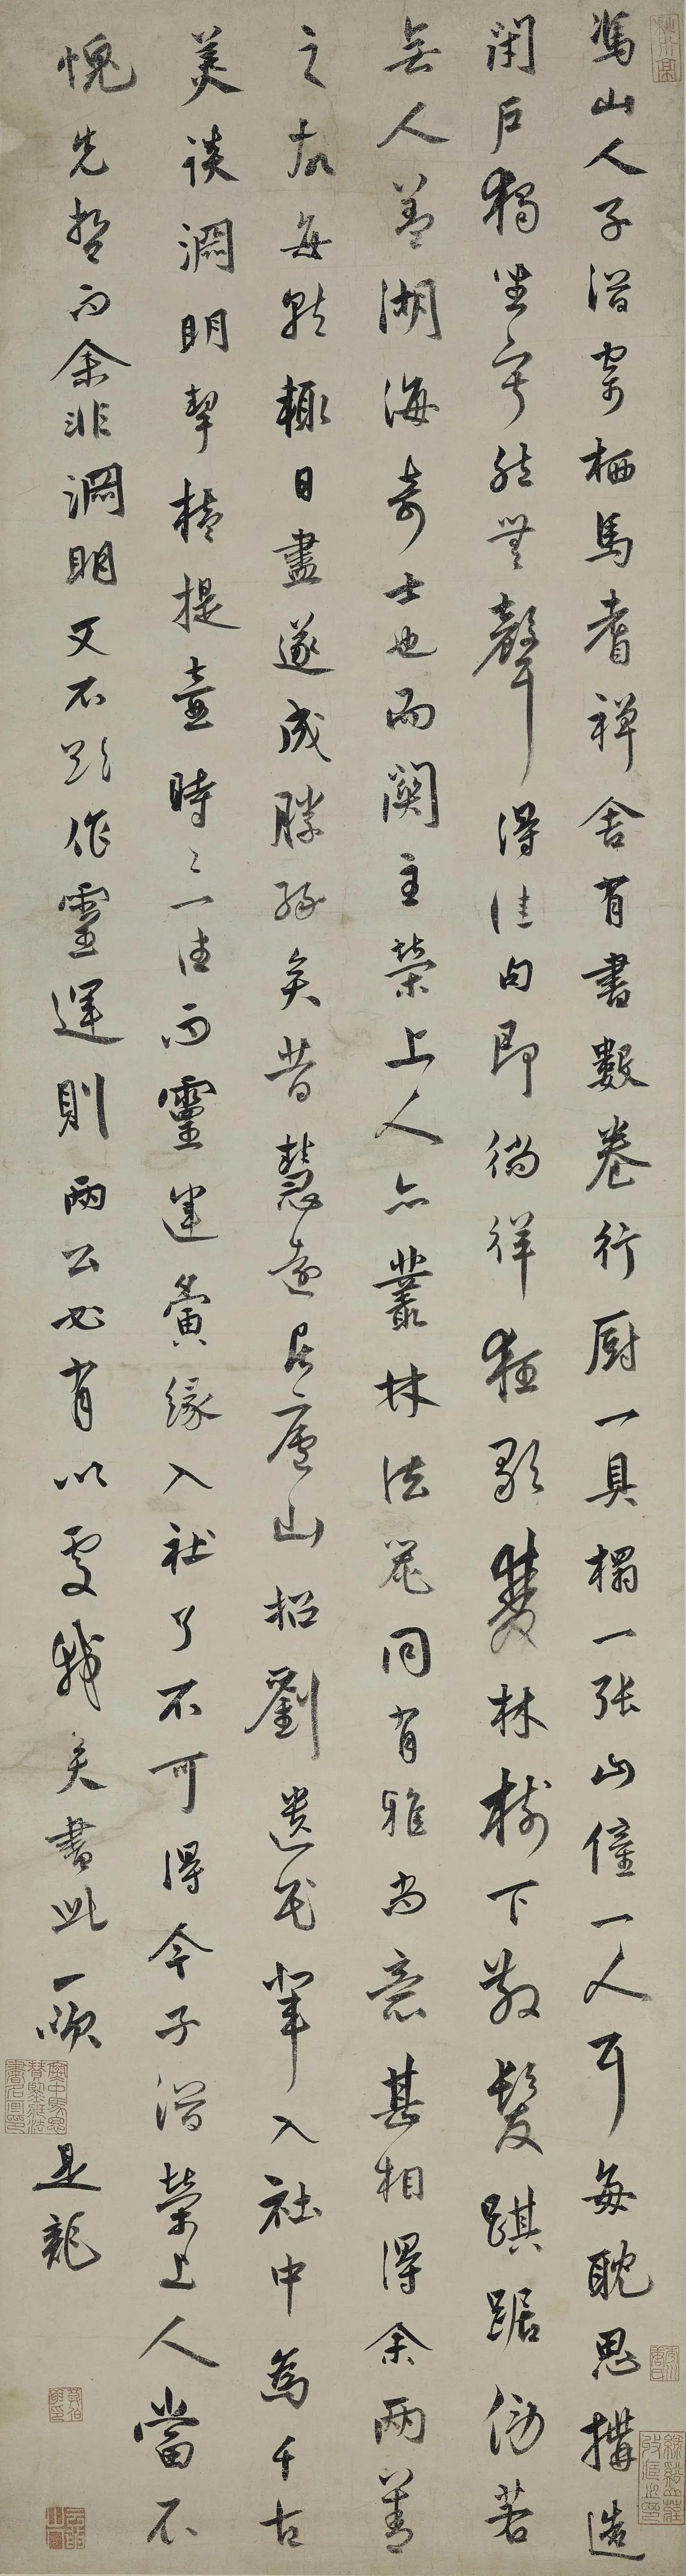 馮山人子潛寄栖馬耆禪舍有書數卷行厨一具榻一張山僮一人耳每耽思搆造
閉戶獨坐宇然無聲得佳句即徜徉狂歌雙林樹下散髮踑踞傍若
無人蓋湖海奇士也而闍主榮上人亦叢林法器同有雅尚意甚相得余兩善
之故每就輒日盡遂成勝緣矣昔慧遠居廬山招劉遺民輩入社中為千古
美談淵明挈榼提壺時〻一往而靈運夤緣入社了不可得今子潛榮上人當不
愧先哲而余非淵明又不敢作靈運則兩公必有以處我矣書此一噱
是龍